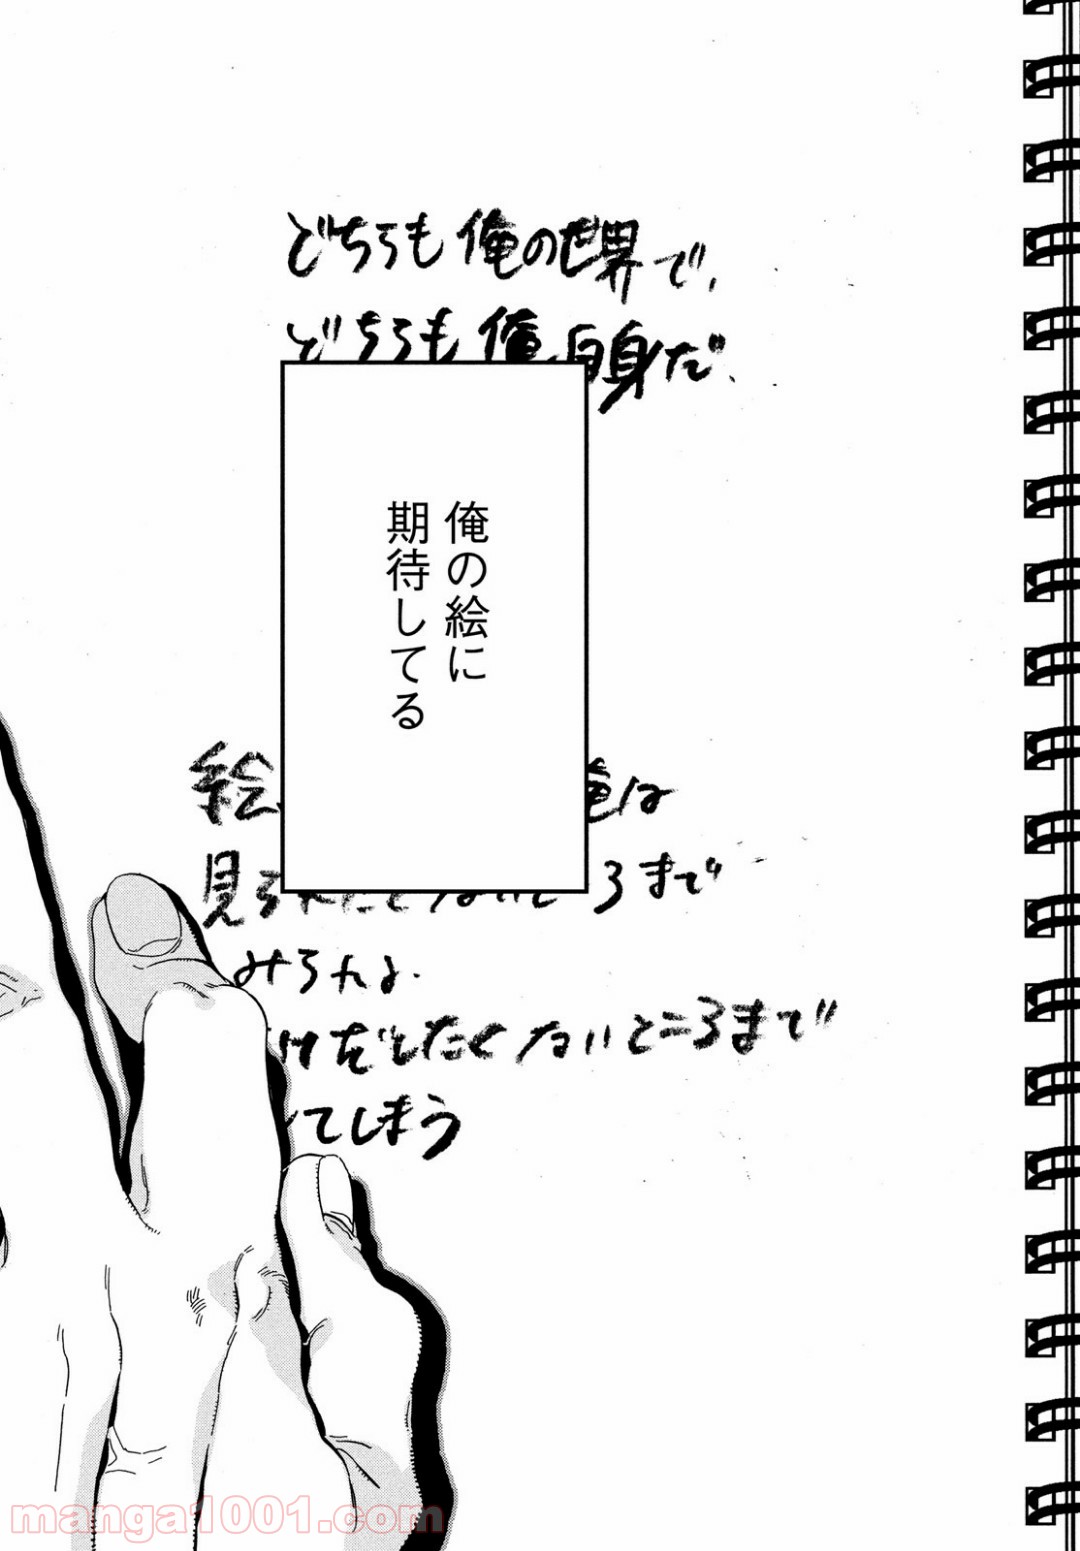 どちらも俺の世界で、
どちらも俺自身だ、
俺の絵に
期待してる
絵 俺は
見られたくないところまで
みられる.
けだしたくないところまで
てしまう
manga1001.com